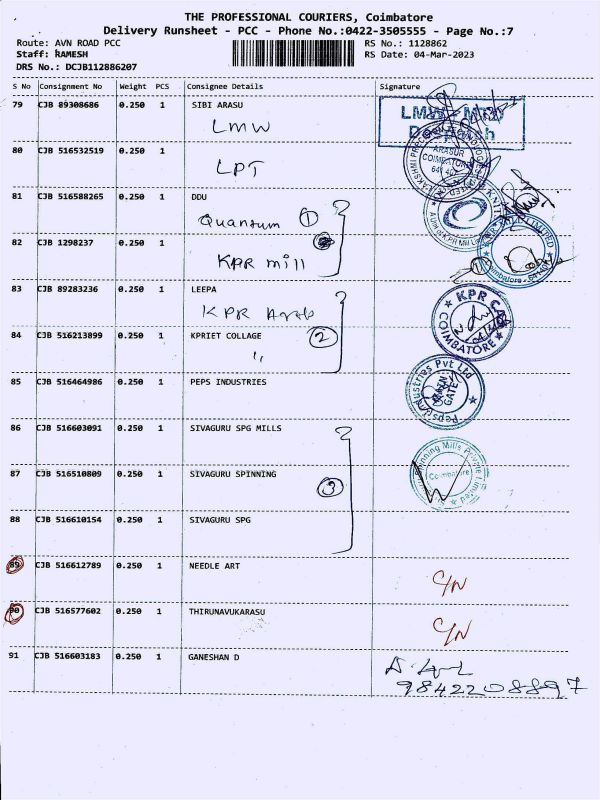 THE PROFESSIONAL COURIERS, Coimbatore
Delivery Runsheet - PCC - Phone No.:0422-3505555 - Page No.:7
Route: AVN ROAD PCC
RS No.: 1128862
Staff: RAMESH
RS Date: 04-Mar-2023
DRS No.: DCJB112886207
S No Consignment No Weight PCS Consignee Details Signature
79 CJB 89308686 0.250 1 SIBI ARASU
LMW
80 CJB 516532519 0.250 1
LPT
ARASUR
COIMBATORE
81 CJB 516588265 0.250 1 DDU
Quantum 1
82 CJB 1298237 0.250 1
KPR mill
Coimbatore
83 CJB 89283236 0.250 1 LEEPA
KPR
KPR
COIMBATORE
84 CJB 516213899 0.250 1 KPRIET COLLAGE 2
"
85 CJB 516464986 0.250 1 PEPS INDUSTRIES
Peps Industries Pvt Ltd
MAIN
GATE
86 CJB 516603091 0.250 1 SIVAGURU SPG MILLS
87 CJB 516510809 0.250 1 SIVAGURU SPINNING 3
Spinning Mills Private Limited
Coimbatore
88 CJB 516610154 0.250 1 SIVAGURU SPG
89 CJB 516612789 0.250 1 NEEDLE ART
C/N
90 CJB 516577602 0.250 1 THIRUNAVUKARASU
C/N
91 CJB 516603183 0.250 1 GANESHAN D
9842208897